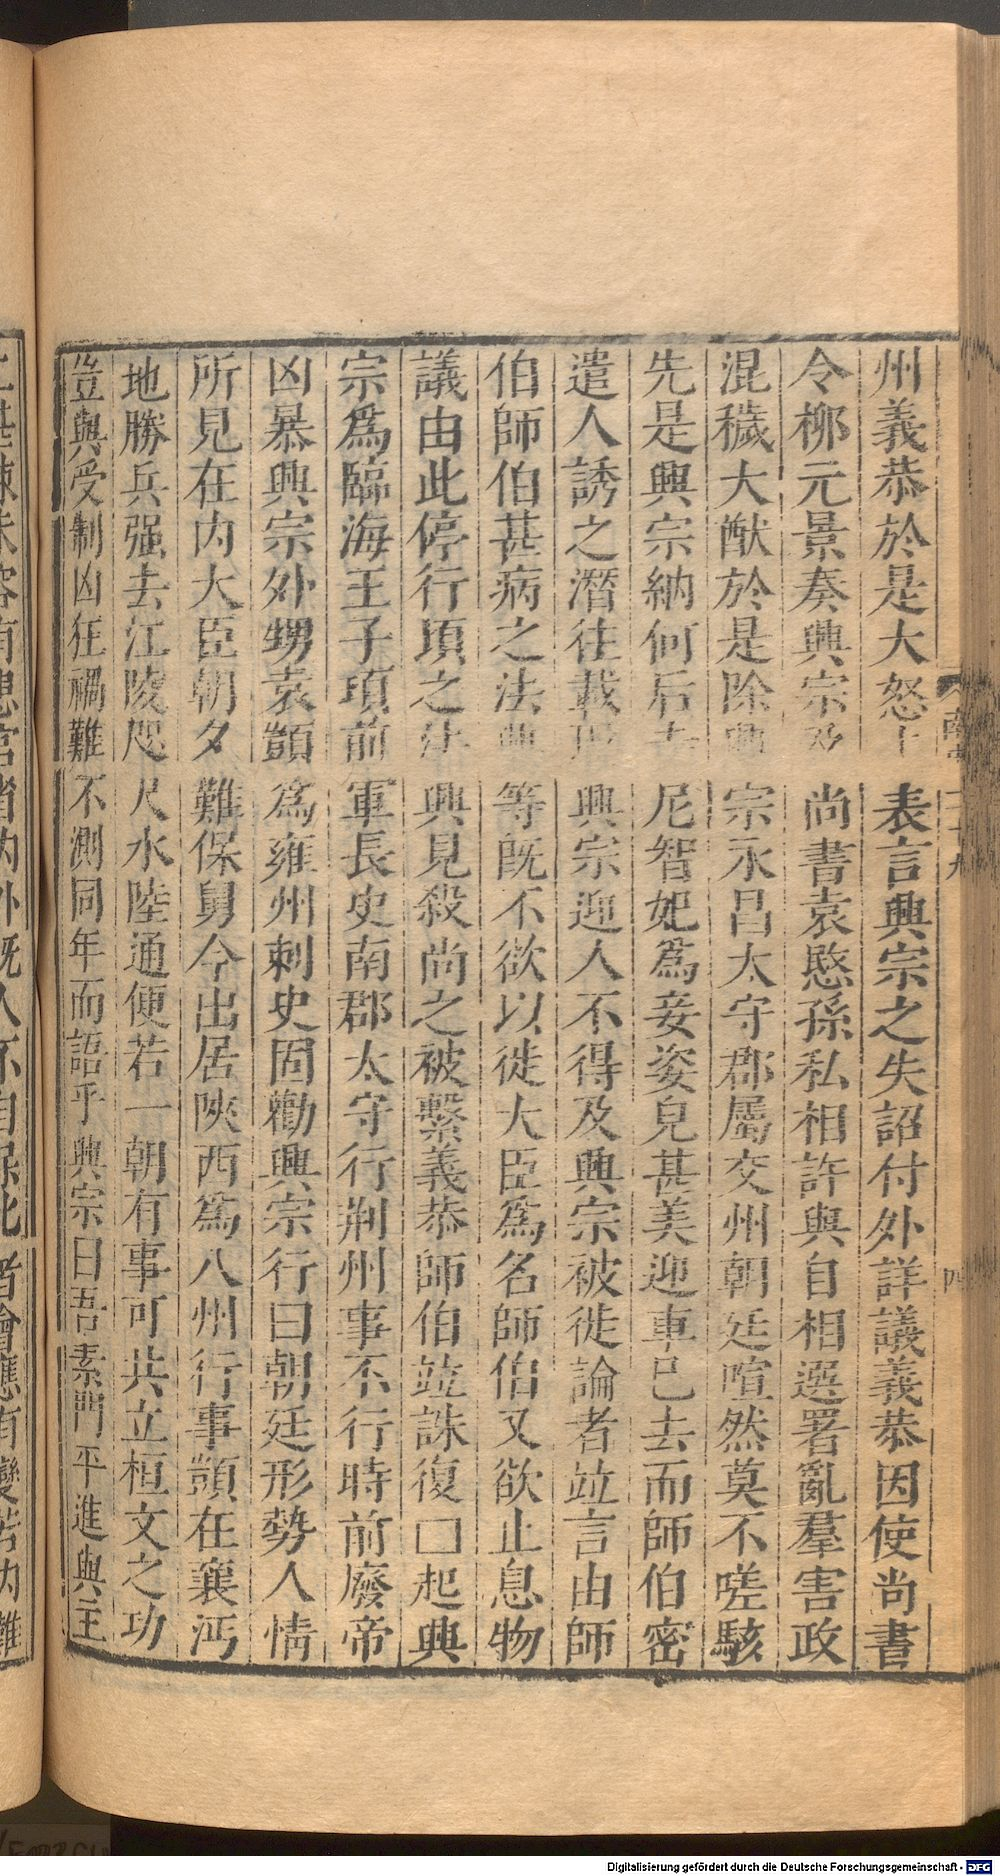 州義恭於是大怒上表言興宗之失詔付外詳議義恭因使尚書
令柳元景奏興宗及尚書袁愍孫私相許與自相選署亂羣害政
混穢大猷於是除興宗永昌太守郡屬交州朝廷喧然莫不嗟駭
先是興宗納何后寺尼智妃爲妾姿皃甚美迎車已去而師伯密
遣人誘之潛往載取興宗迎人不得及興宗被徙論者竝言由師
伯師伯甚病之法興等旣不欲以徙大臣爲名師伯又欲止息物
議由此停行頃之法興見殺尚之被繫義恭師伯竝誅復囗起興
宗爲臨海王子頊前軍長史南郡太守行荆州事不行時前廢帝
凶暴興宗外甥袁顗爲雍州刺史固勸興宗行曰朝廷形勢人情
所見在内大臣朝夕難保舅今出居陝西爲八州行事顗在襄沔
地勝兵强去江陵咫尺水陸通便若一朝有事可共立桓文之功
豈與受制凶狂禍難不測同年而語乎興宗曰吾素門平進與主
南史二十九
四
Digitalisierung gefördert durch die Deutsche Forschungsgemeinschaft - DFG